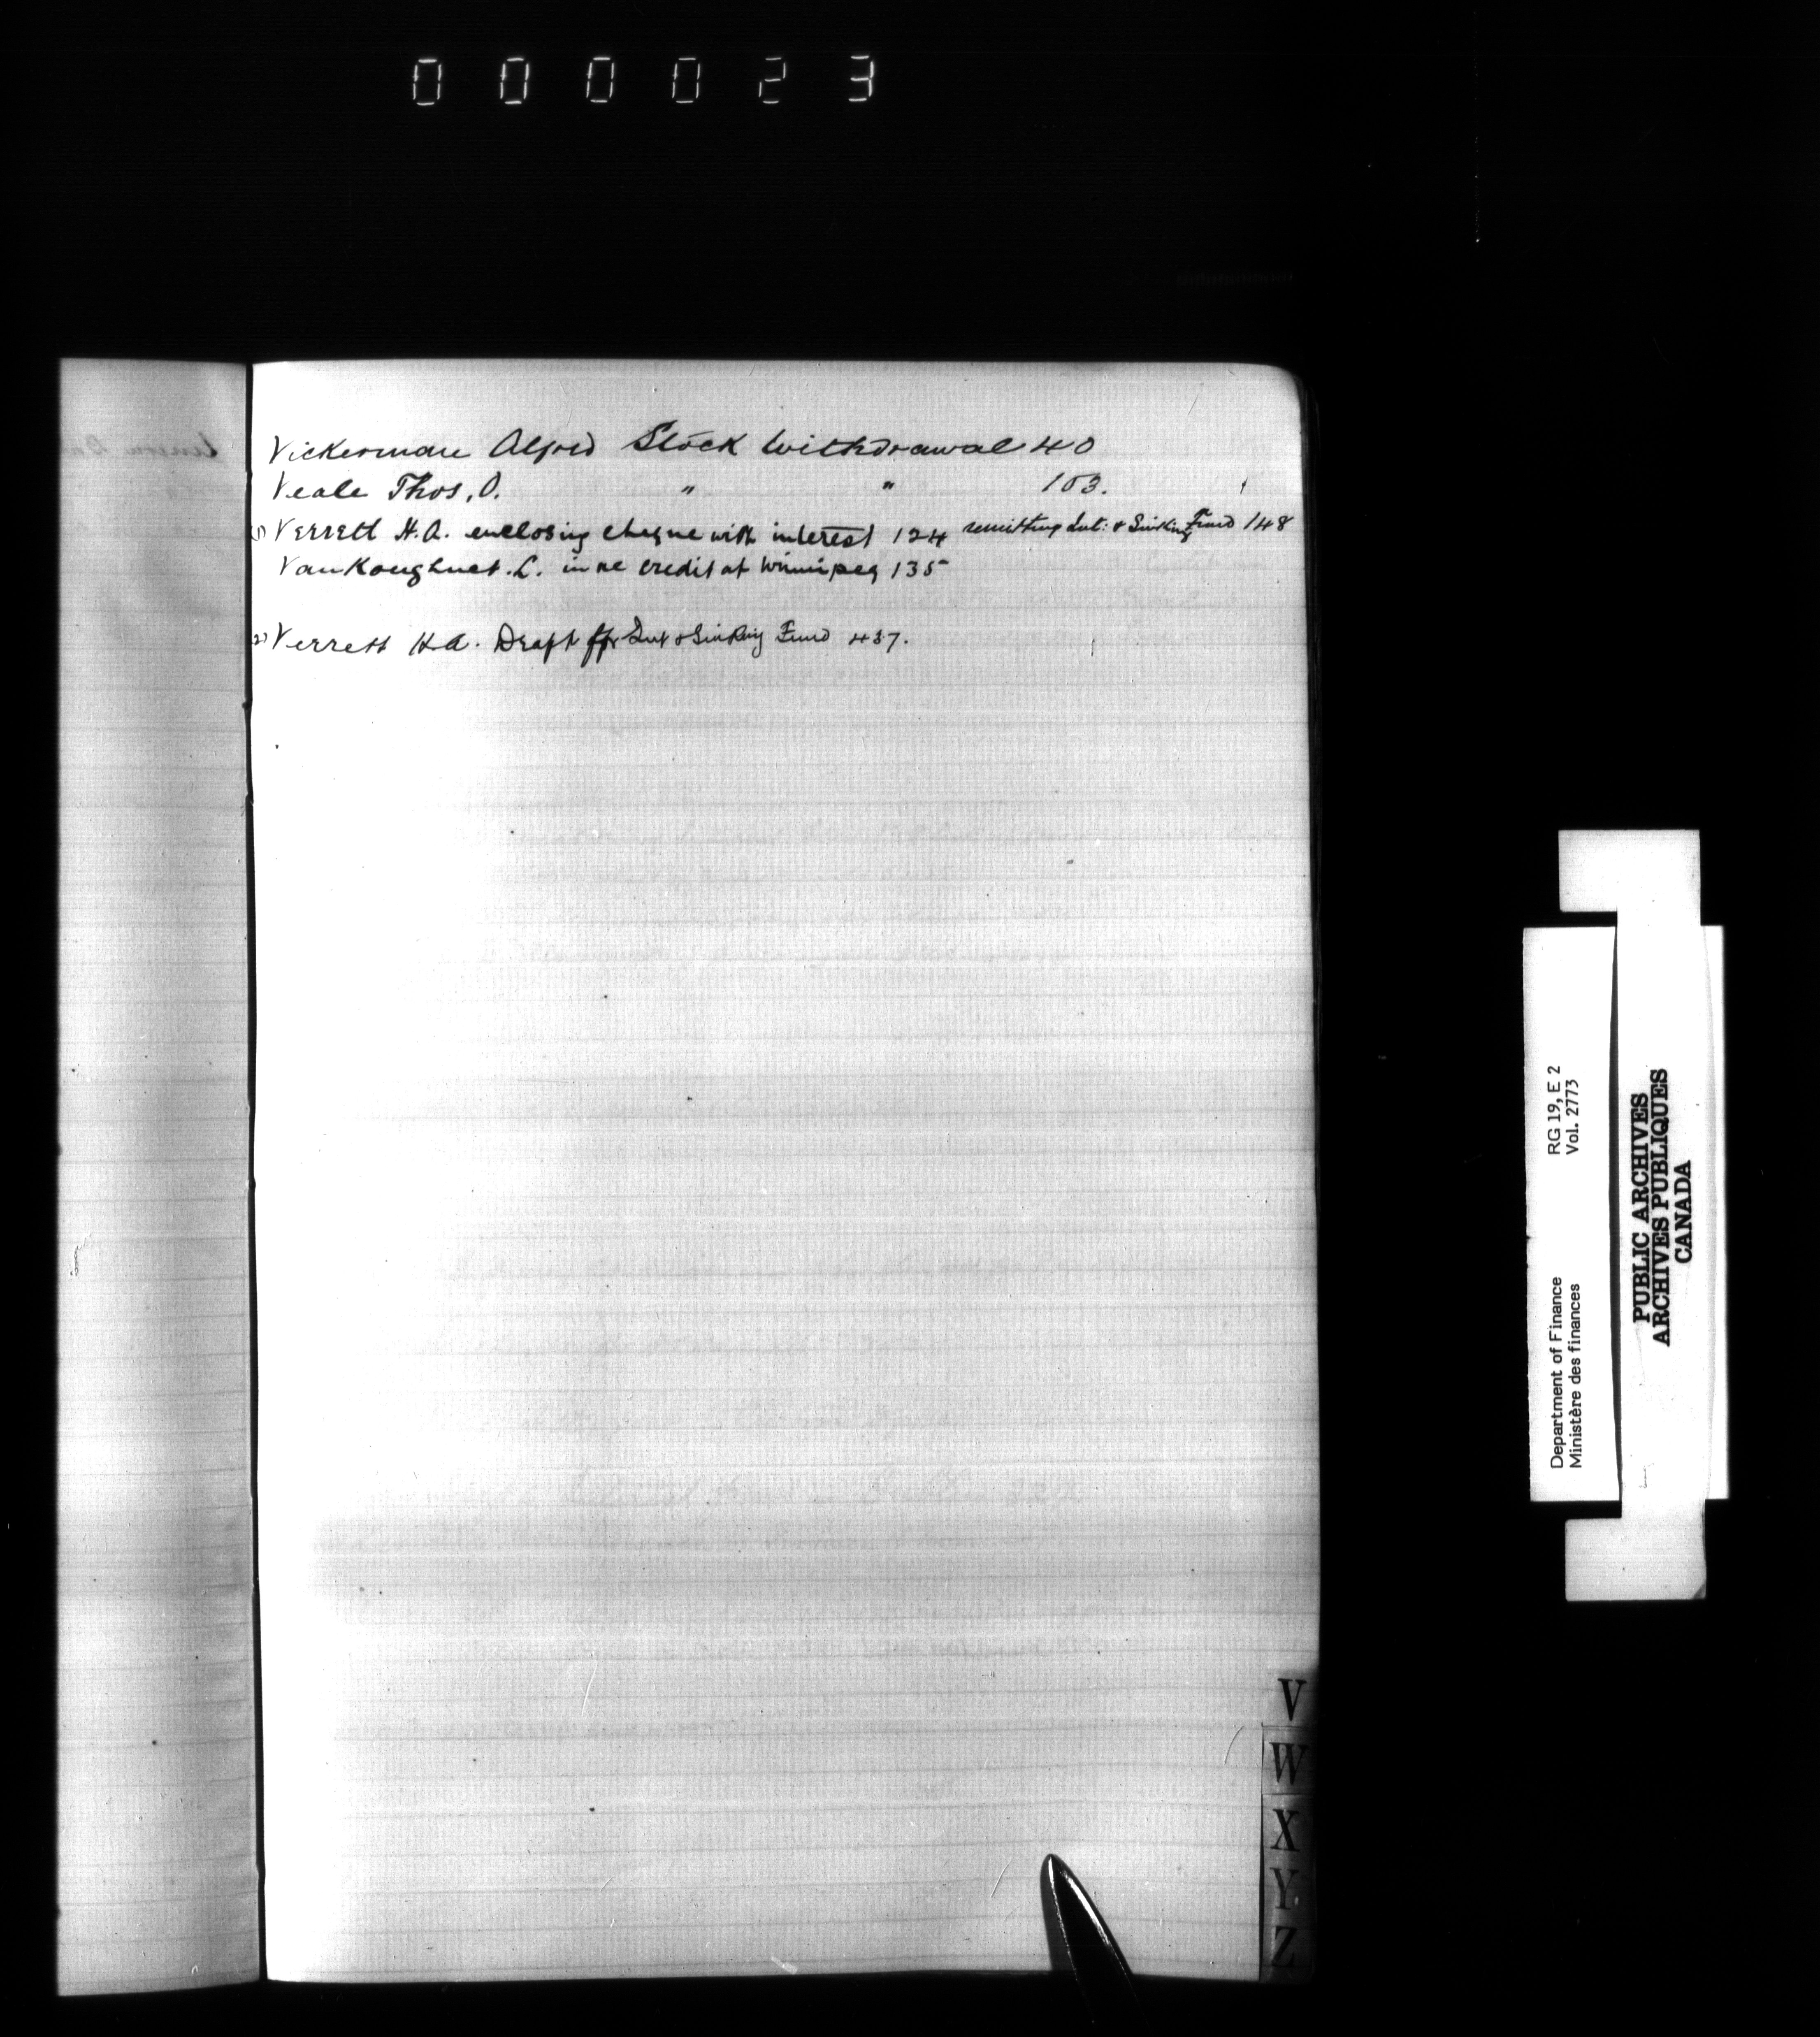 000023
Vickerman Alfred Stock Withdrawal 40
Veale Thos. O. " " 103.
(1) Verrett H.A. enclosing cheque with interest 124 remitting Int: & Sinking Fund 148
VanKoughnet. L. in re credit at Winnipeg 135
(2) Verrett H.A. Draft for Int & Sinking Fund 437.
V
W
X
Y
Z
Department of Finance RG 19, E 2
Ministère des finances Vol. 2773
PUBLIC ARCHIVES
ARCHIVES PUBLIQUES
CANADA